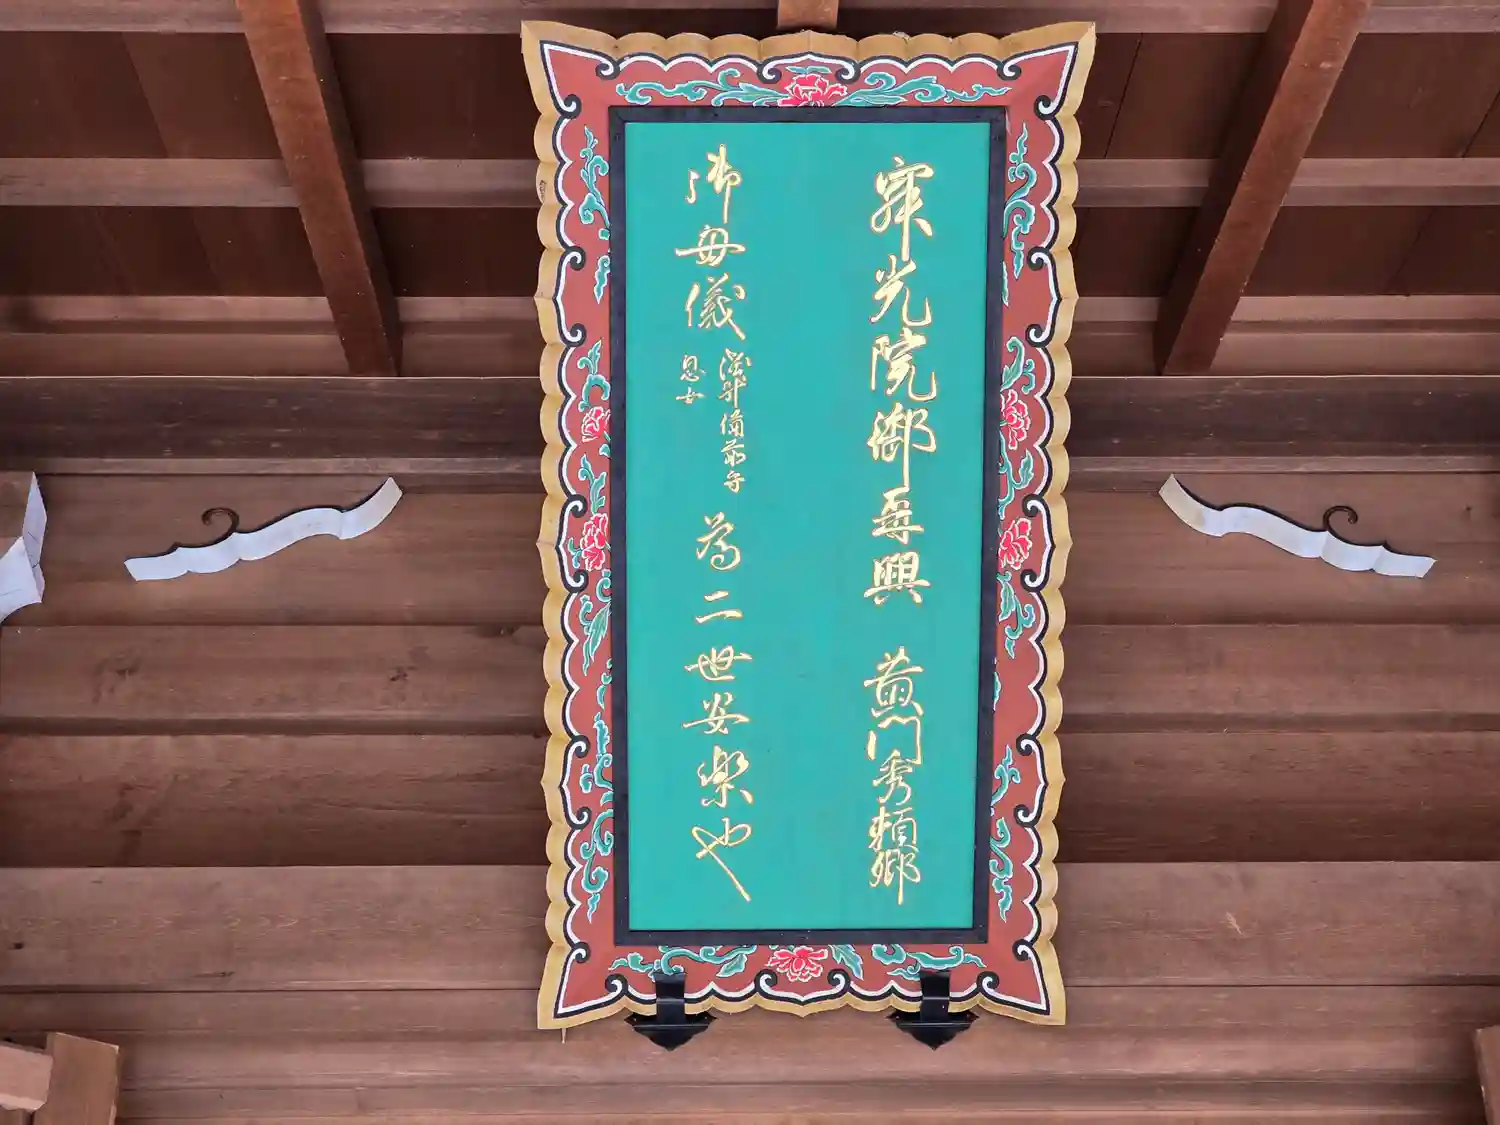 寂光院御再興 黄門秀頼卿
御母儀 淺井備前守息女 為二世安樂也